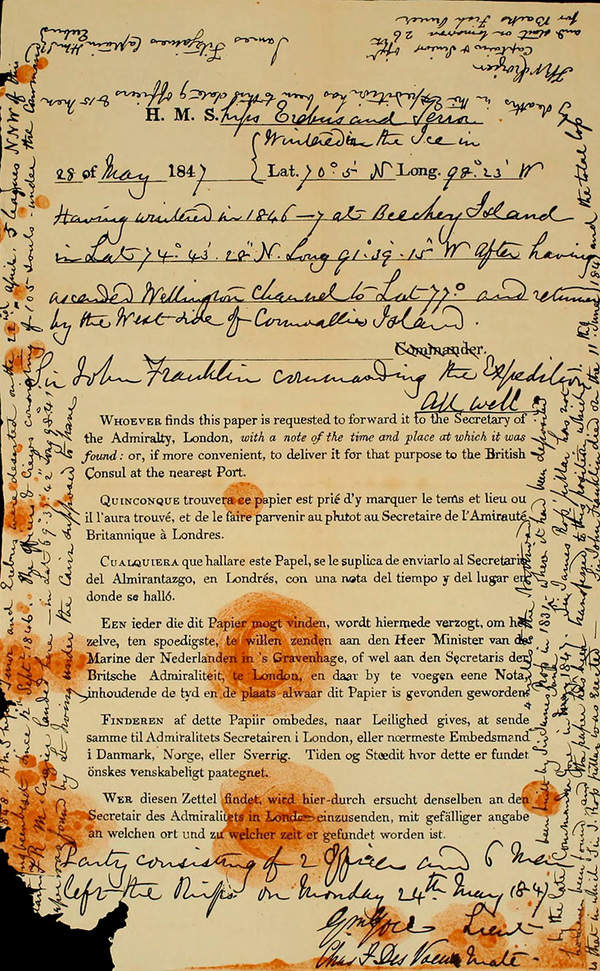 H. M. Ships Erebus and Terror
Wintered in the Ice in
28 of May 1847 Lat. 70° 5' N Long. 98° 23' W
Having wintered in 1846-7 at Beechey Island
in Lat 74° 43' 28" N. Long 91° 39' 15" W After having
ascended Wellington Channel to Lat 77° and returned
by the West side of Cornwallis Island.
Commander.
Sir John Franklin commanding the Expedition
All well
WHOEVER finds this paper is requested to forward it to the Secretary of
the Admiralty, London, with a note of the time and place at which it was
found: or, if more convenient, to deliver it for that purpose to the British
Consul at the nearest Port.
QUINCONQUE trouvera ce papier est prié d'y marquer le tems et lieu ou
il l'aura trouvé, et de le faire parvenir au plutot au Secretaire de l'Amirauté
Britannique à Londres.
CUALQUIERA que hallare este Papel, se le suplica de enviarlo al Secretario
del Almirantazgo, en Londrés, con una nota del tiempo y del lugar en
donde se halló.
EEN ieder die dit Papier mogt vinden, wordt hiermede verzogt, om het
zelve, ten spoedigste, te willen zenden aan den Heer Minister van de
Marine der Nederlanden in 's Gravenhage, of wel aan den Secretaris der
Britsche Admiraliteit, te London, en daar by te voegen eene Nota,
inhoudende de tyd en de plaats alwaar dit Papier is gevonden geworden
FINDEREN af dette Papiir ombedes, naar Leilighed gives, at sende
samme til Admiralitets Secretairen i London, eller nœrmeste Embedsmand
i Danmark, Norge, eller Sverrig. Tiden og Stœdit hvor dette er fundet
önskes venskabeligt paategnet.
WER diesen Zettel findet, wird hier-durch ersucht denselben an den
Secretair des Admiralitets in London einzusenden, mit gefälliger angabe
an welchen ort und zu welcher zeit er gefundet worden ist.
Party consisting of 2 Officers and 6 Men
left the Ships on Monday 24th May 1847
Gm Gore Lieut
Chas F Des Voeux Mate
848 H.M. Ships Terror and Erebus were deserted on the 22nd April, 5 leagues NNW of this
been beset since 12th Septr 1846. The Officers & Crews consisting of 105 souls under the command
tain F.R.M. Crozier landed here - in Lat 69° 37' 42" Long 98° 41'
paper was found by Lt Irving under the Cairn supposed to have
been built by Sir James Ross in 1831 where it had been deposited
4 miles to the Northward
by the late Commander Gore in June May 1847. Sir James Ross' pillar has not
however been found and the paper has been transferred to this position which
is that in which Sir J. Ross' pillar was erected - Sir John Franklin died on the 11 June 1847 and the total loss
by deaths in the Expedition has been to this date 9 officers & 15 men
James Fitzjames Captain HMS Erebus
FRM Crozier
Captain & Senior Offr
and start on tomorrow 26
for Backs Fish River